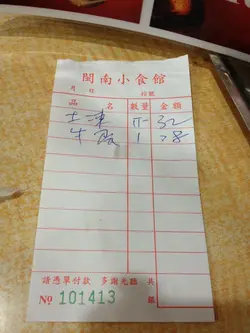 閩南小食館
月 枱 經手
品 名 數量 金額
土凍 32
牛 1 28
請憑單付款 多謝光臨 共銀
No 101413